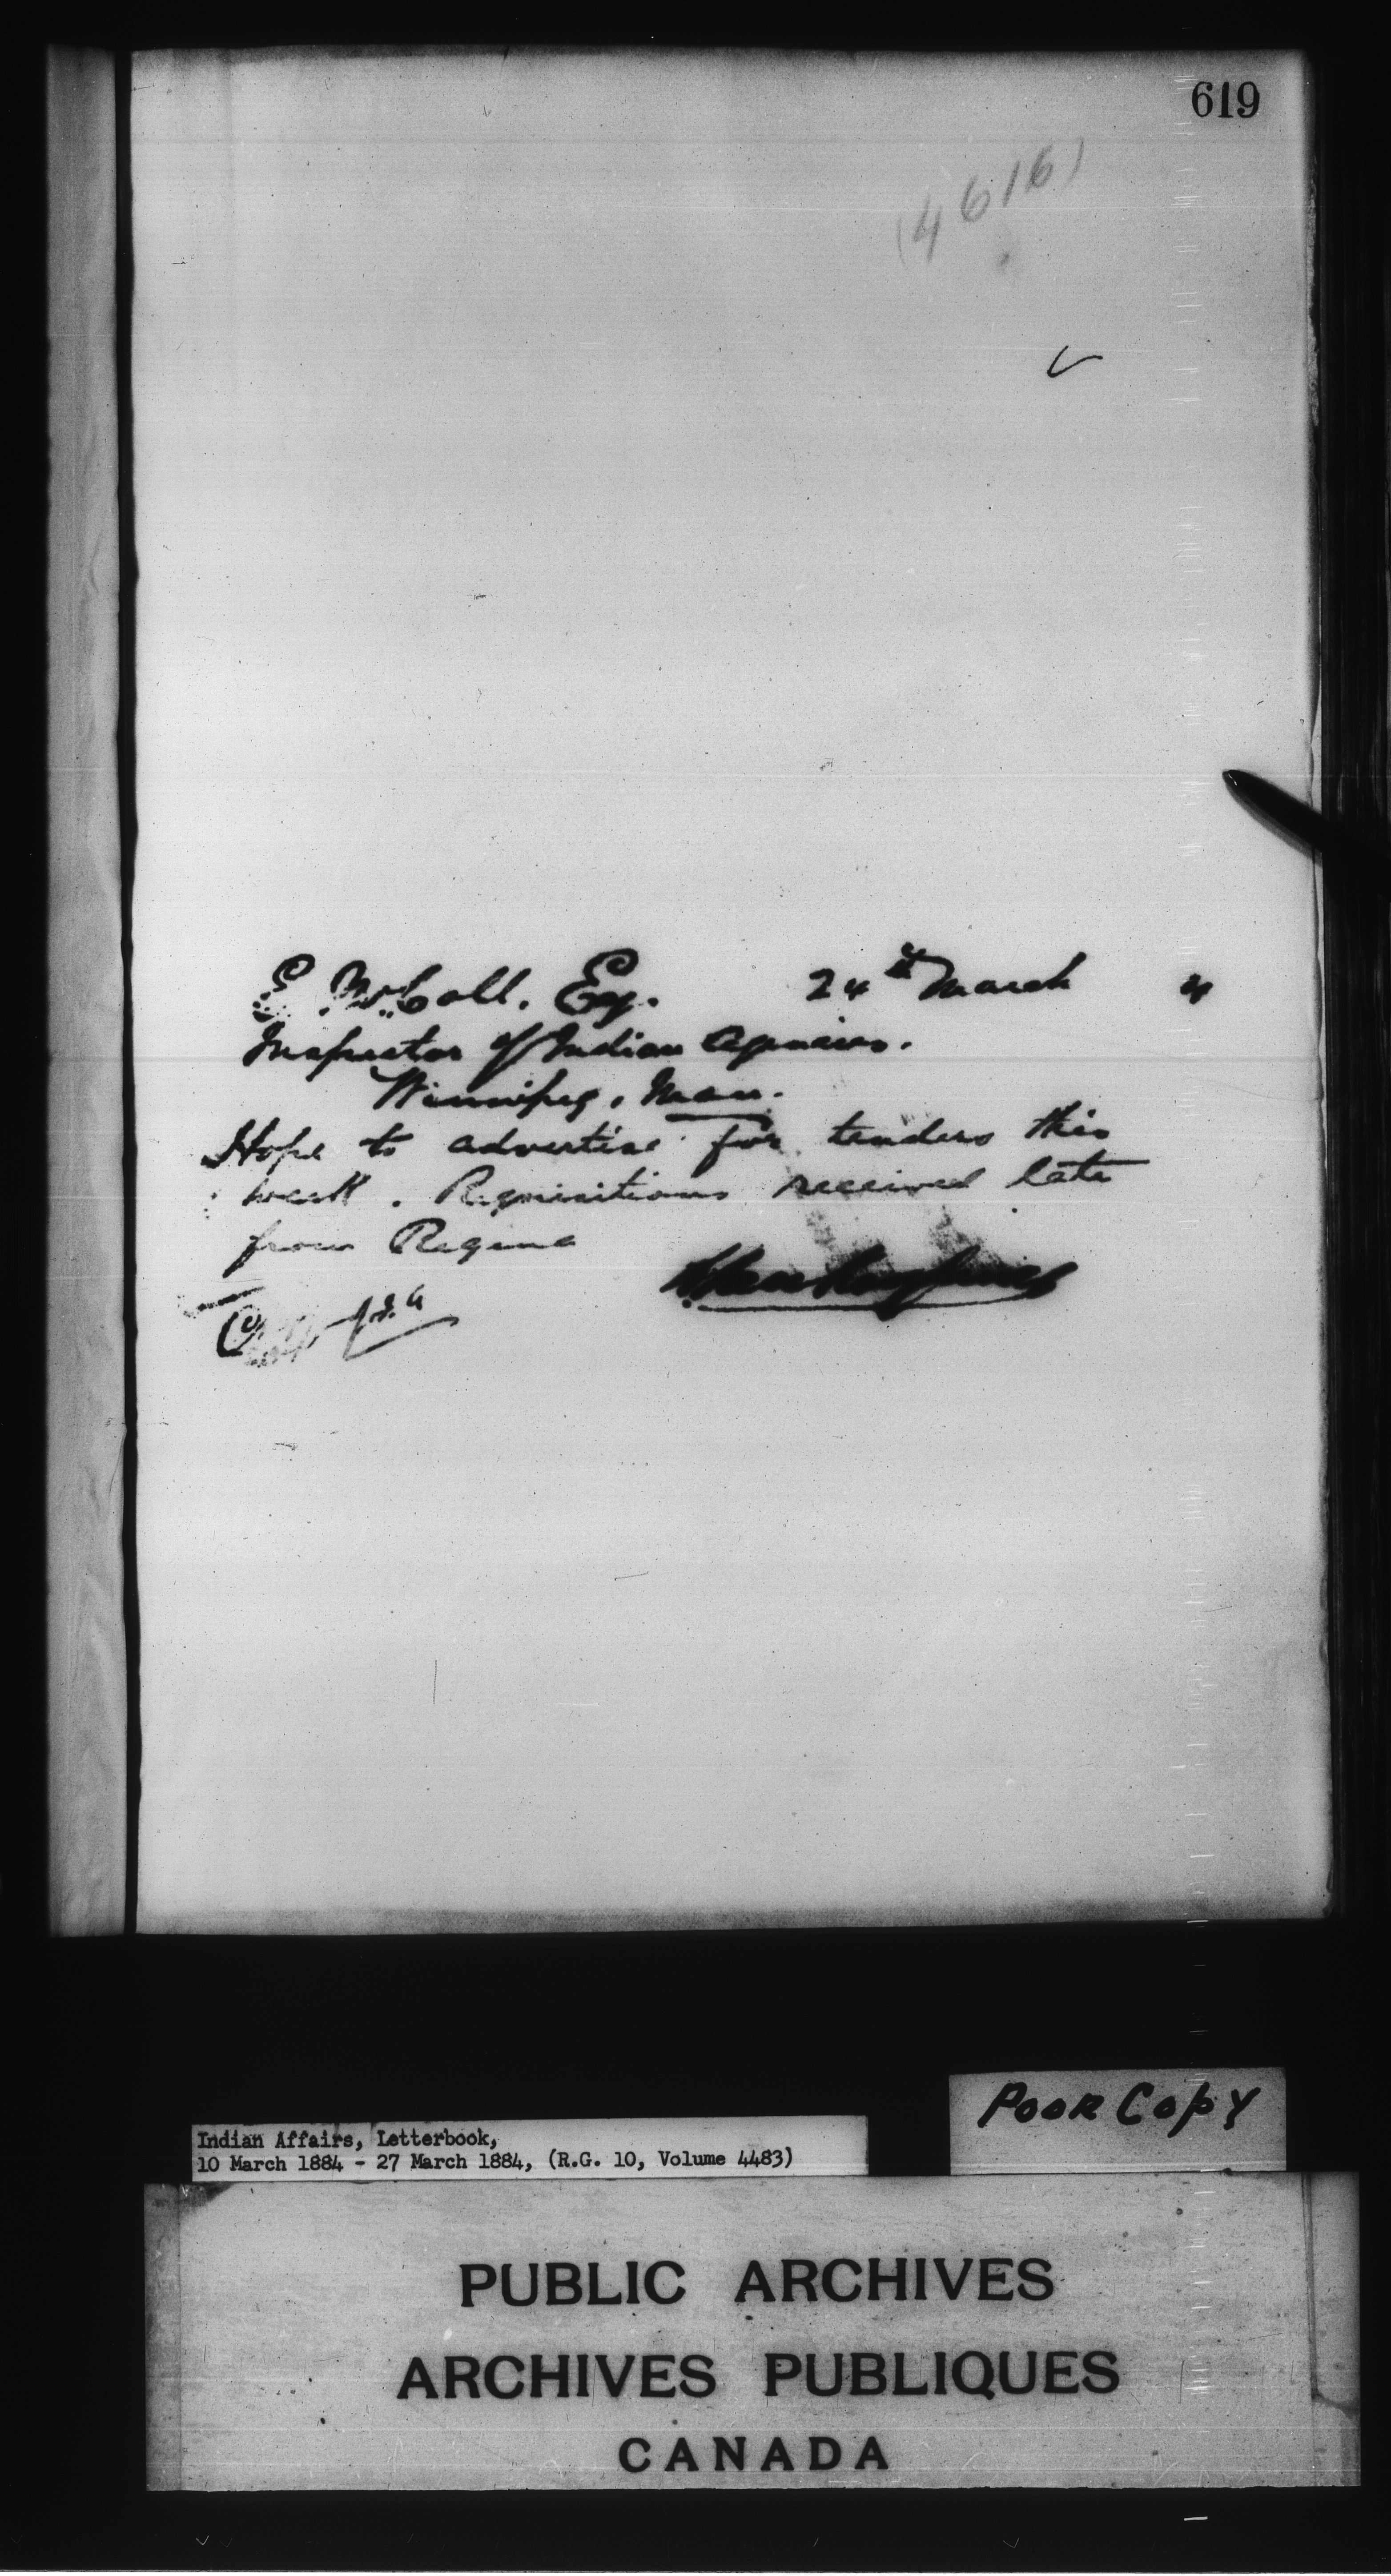 619
(4616)
E. McColl. Esq. 24th March 4
Inspector of Indian Agencies.
Winnipeg, Man.
Hope to advertise for tenders this
week. Requisitions received late
from Regina
Indian Affairs, Letterbook,
10 March 1884 - 27 March 1884, (R.G. 10, Volume 4483)
POOR COPY
PUBLIC ARCHIVES
ARCHIVES PUBLIQUES
CANADA